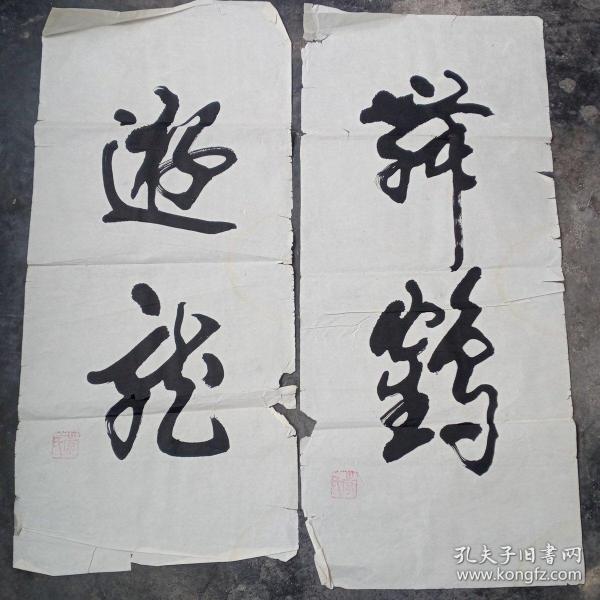 舞鹤
遊龙
孔夫子旧书网
www.kongfz.com